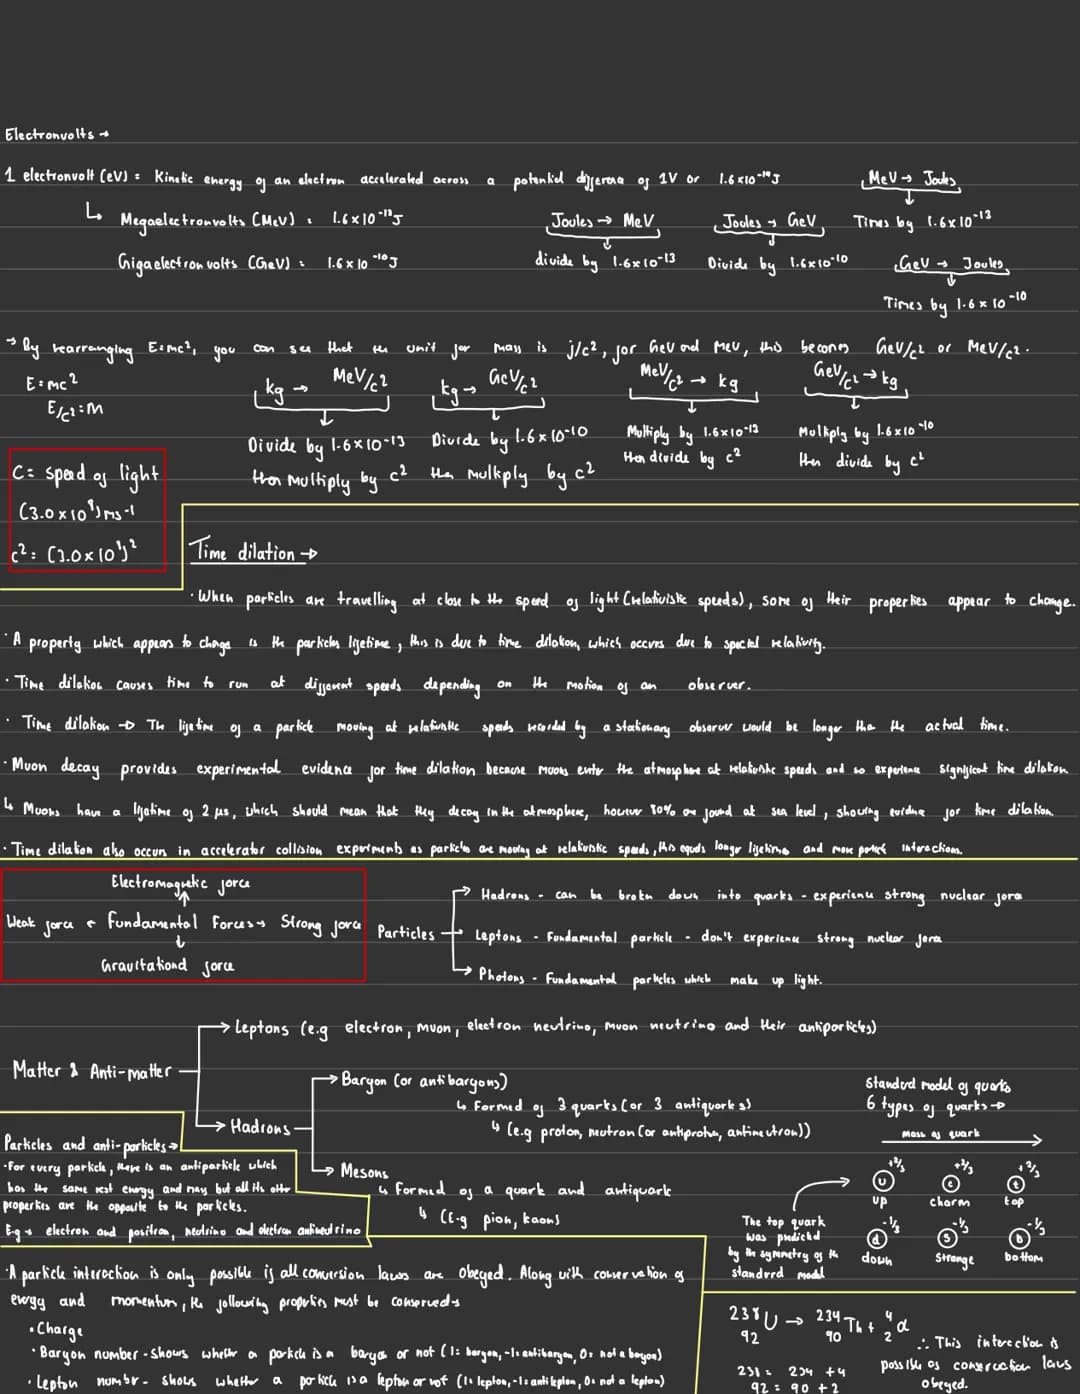 Electronvolts →
1 electronvolt (eV) = Kinetic energy of an electron accelerated across a potential difference of 1V or 1.6x10⁻¹⁹J
↳ Megaelectronvolts (MeV) = 1.6x10⁻¹³J
Gigaelectronvolts (GeV) = 1.6x10⁻¹⁰J
Joules → MeV
divide by 1.6x10⁻¹³
Joules → GeV
Divide by 1.6x10⁻¹⁰
MeV → Joules
Times by 1.6x10⁻¹³
GeV → Joules
Times by 1.6x10⁻¹⁰
→ By rearranging E=mc², you can see that the unit for mass is j/c², for GeV and MeV, this becomes GeV/c² or MeV/c².
E=mc²
E/c²=m
kg → MeV/c²
Divide by 1.6x10⁻¹³
then multiply by c²
kg → GeV/c²
Divide by 1.6x10⁻¹⁰
then multiply by c²
MeV/c² → kg
Multiply by 1.6x10⁻¹³
then divide by c²
GeV/c² → kg
Multiply by 1.6x10⁻¹⁰
then divide by c²
C = speed of light
(3.0x10⁸)ms⁻¹
c² = (3.0x10⁸)²
Time dilation →
· When particles are travelling at close to the speed of light (relativistic speeds), some of their properties appear to change.
· A property which appears to change is the particles lifetime, this is due to time dilation, which occurs due to special relativity.
· Time dilation causes time to run at different speeds depending on the motion of an observer.
· Time dilation → The lifetime of a particle moving at relativistic speeds recorded by a stationary observer would be longer than the actual time.
· Muon decay provides experimental evidence for time dilation because muons enter the atmosphere at relativistic speeds and so experience significant time dilation
↳ Muons have a lifetime of 2 μs, which should mean that they decay in the atmosphere, however 80% are found at sea level, showing evidence for time dilation.
· Time dilation also occurs in accelerator collision experiments as particles are moving at relativistic speeds, this equals longer lifetimes and more particle interactions.
Electromagnetic force
↑
Weak force ← Fundamental Forces → Strong force
↓
Gravitational force
Particles
→ Hadrons - can be broken down into quarks - experience strong nuclear force
→ Leptons - Fundamental particle - don't experience strong nuclear force
→ Photons - Fundamental particles which make up light.
Matter & Anti-matter
→ Leptons (e.g electron, muon, electron neutrino, muon neutrino and their antiparticles)
→ Hadrons
→ Baryon (or antibaryons)
↳ Formed of 3 quarks (or 3 antiquarks)
↳ (e.g proton, neutron (or antiproton, antineutron))
→ Mesons
↳ Formed of a quark and antiquark
↳ (E.g pion, kaon)
Standard model of quarks
6 types of quarks →
Mass of quark
u +2/3
up
c +2/3
charm
t +2/3
top
d -1/3
down
s -1/3
Strange
b -1/3
bottom
The top quark
was predicted
by the symmetry of the
standard model
Particles and anti-particles →
· For every particle, there is an antiparticle which
has the same rest energy and mass but all its other
properties are the opposite to the particles.
E.g → electron and positron, neutrino and electron antineutrino
· A particle interaction is only possible if all conversion laws are obeyed. Along with conservation of
energy and momentum, the following properties must be conserved →
· Charge
· Baryon number - shows whether a particle is a baryon or not (1= baryon, -1= antibaryon, 0= not a baryon)
· Lepton number - shows whether a particle is a lepton or not (1= lepton, -1= antilepton, 0= not a lepton)
²³⁸₉₂U → ²³⁴₉₀Th + ⁴₂α
238 = 234 + 4
92 = 90 + 2
∴ This interaction is
possible as conservation laws
obeyed.